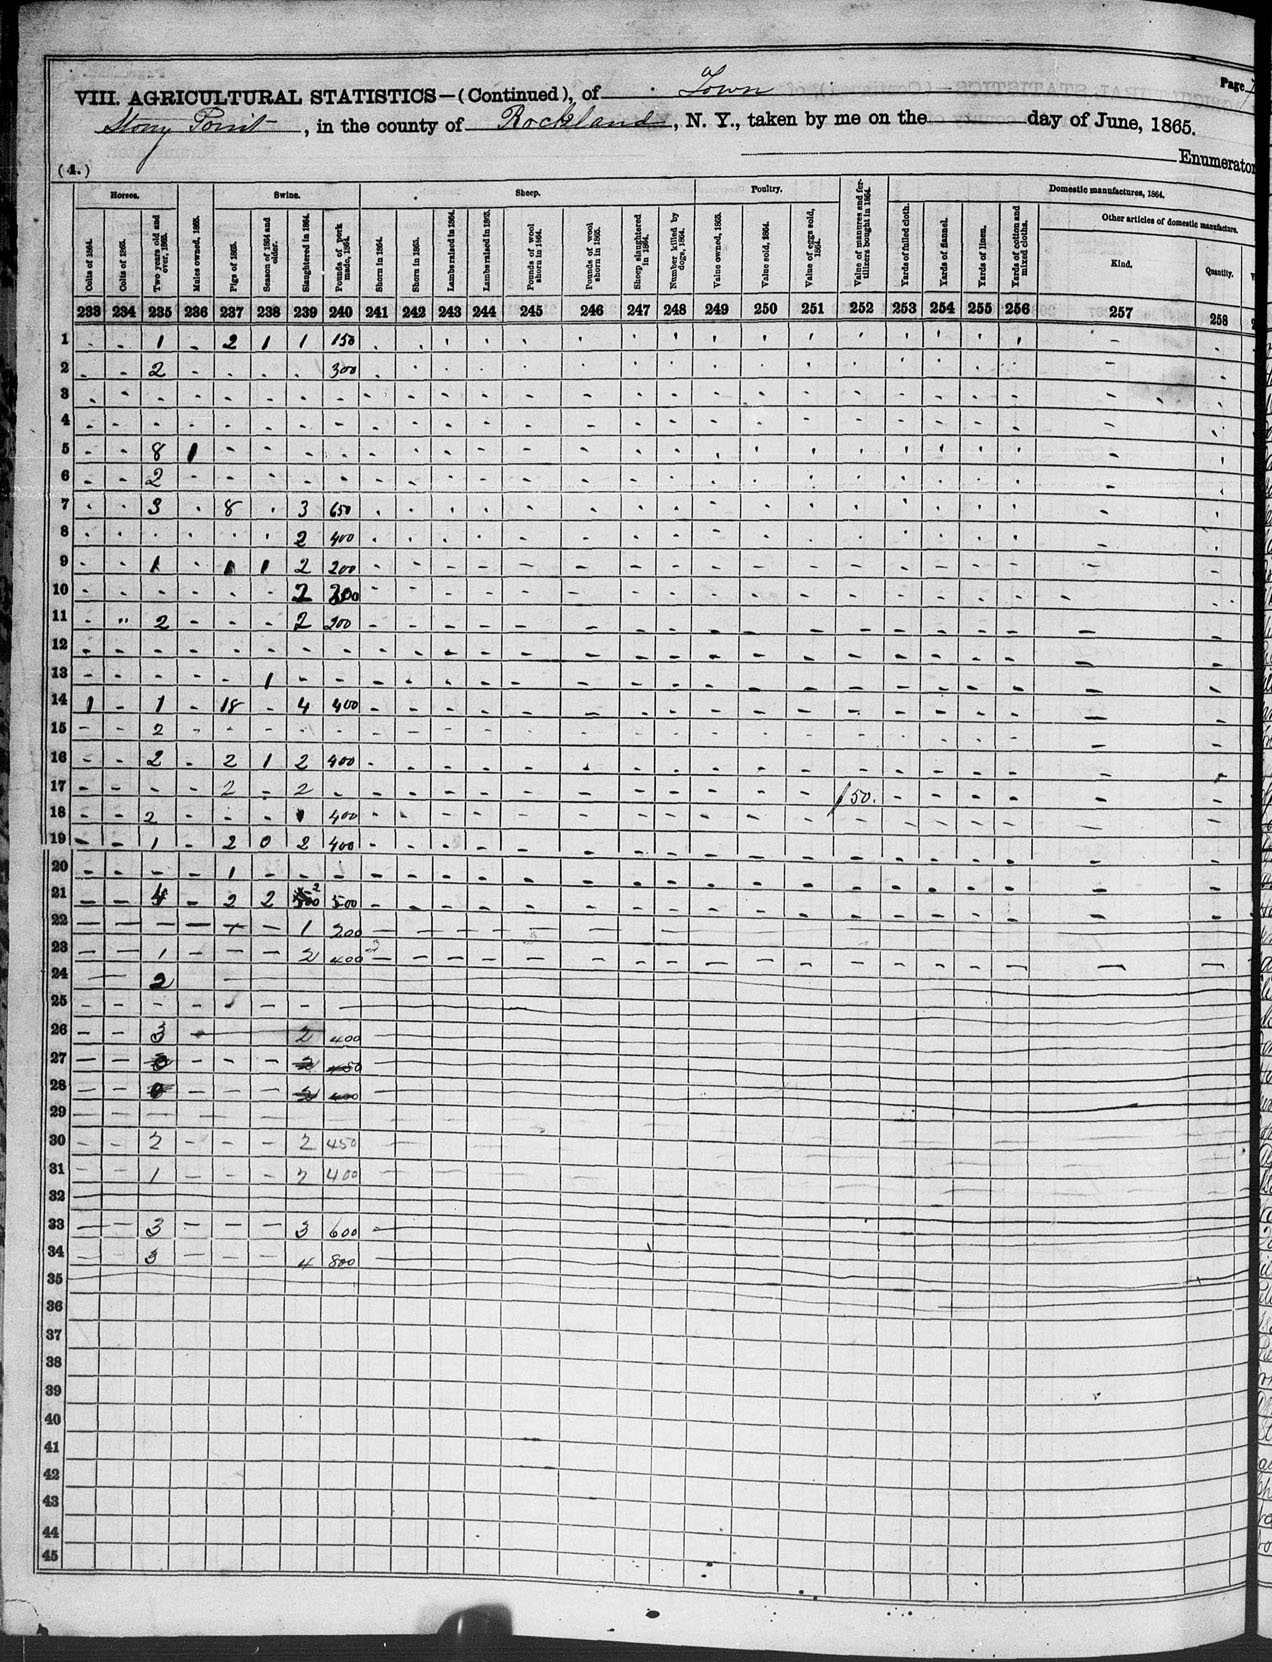 Page
VIII. AGRICULTURAL STATISTICS—(Continued), of Town
Stony Point, in the county of Rockland, N. Y., taken by me on the day of June, 1865.
Enumerator
(4.)
Horses. Swine. Sheep. Poultry. Domestic manufactures, 1864.
Other articles of domestic manufacture.
Colts of 1864. Colts of 1865. Two years old and over, 1865. Mules owned, 1865. Pigs of 1865. Season of 1864 and older. Slaughtered in 1864. Pounds of pork made, 1864. Shorn in 1864. Shorn in 1865. Lambs raised in 1864. Lambs raised in 1865. Pounds of wool shorn in 1864. Pounds of wool shorn in 1865. Sheep slaughtered in 1864. Number killed by dogs, 1864. Value owned, 1865. Value sold, 1864. Value of eggs sold, 1864. Value of manures and fertilizers bought in 1864. Yards of fulled cloth. Yards of flannel. Yards of linen. Yards of cotton and mixed cloths. Kind. Quantity.
233 234 235 236 237 238 239 240 241 242 243 244 245 246 247 248 249 250 251 252 253 254 255 256 257 258
1 - - 1 - 2 1 1 150
2 - - 2 - - - - 300
3
4
5 - - 8 1
6 - - 2
7 - - 3 - 8 - 3 650
8 - - - - - - 2 400
9 - - 1 - 1 1 2 200
10 - - - - - - 2 200
11 - " 2 - - - 2 200
12
13 - - - - - 1
14 1 - 1 - 18 - 4 400
15 - - 2
16 - - 2 - 2 1 2 400
17 - - - - 2 - 2 - 150.
18 - - 2 - - - 1 400
19 - - 1 - 2 0 2 400
20 - - - - 1
21 - - 4 - 2 2 2 500
22 - - - - - - 1 200
23 - - 1 - - - 2 400
24 - 2
25
26 - - 3 - 2 400
27
28
29
30 - - 2 - - - 2 450
31 1 - - - 2 400
32
33 - - 3 - - - 3 600
34 - - 3 - - - 4 800
35
36
37
38
39
40
41
42
43
44
45